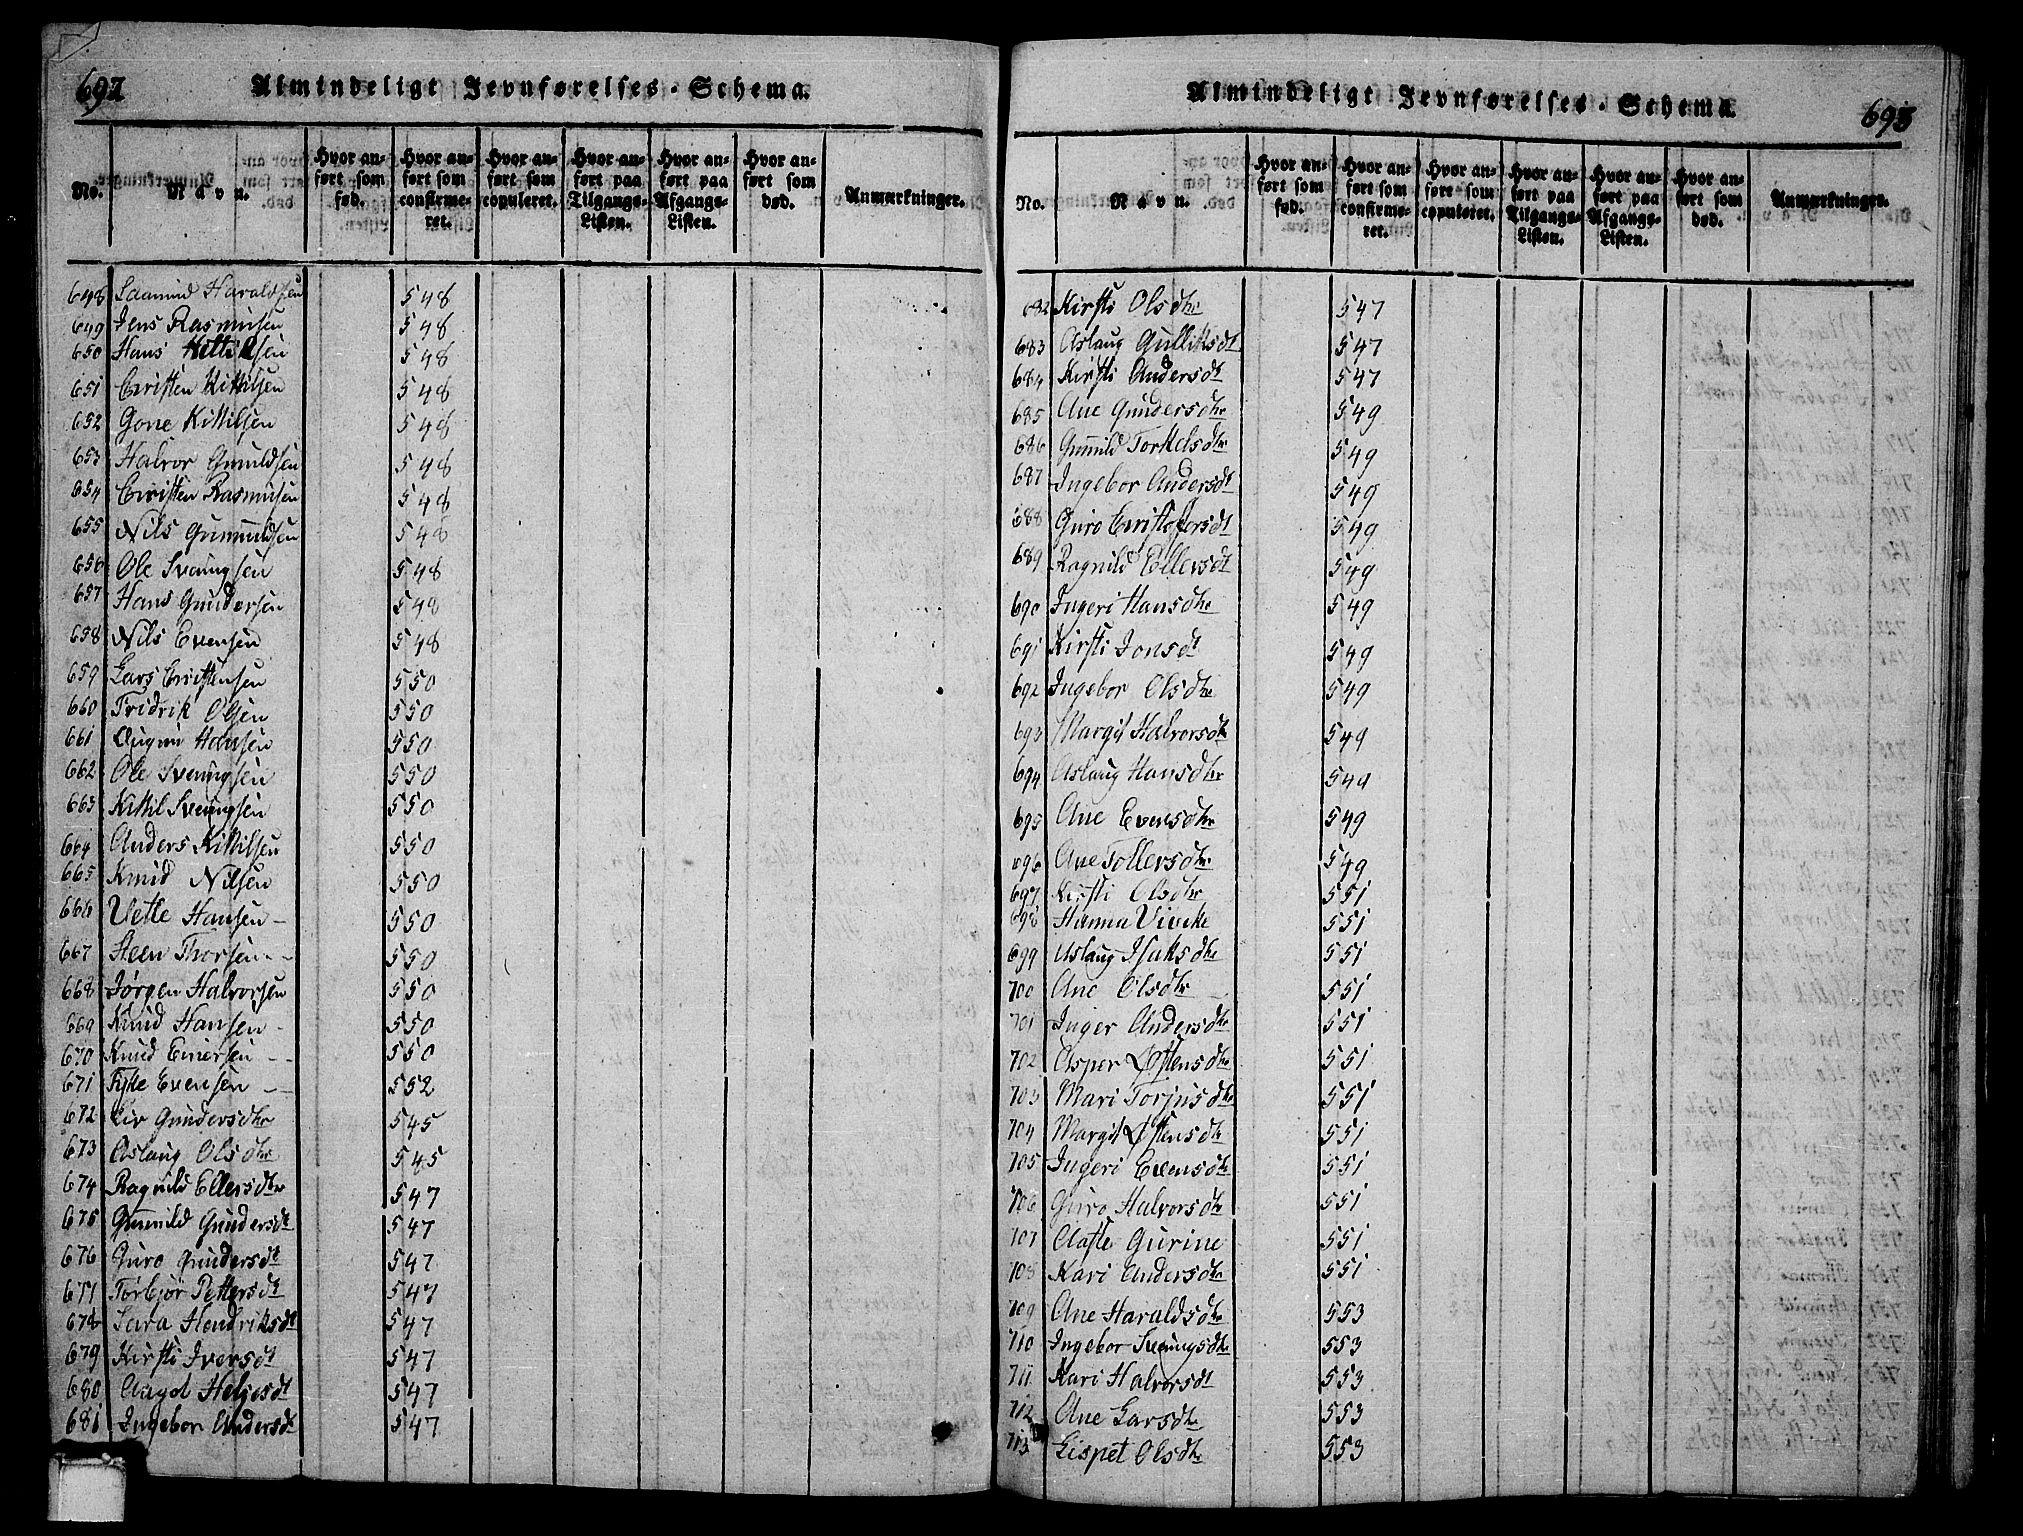 692
Almindeligt Jevnførelses-Schema.
No. Navn. Hvor anført som fød. Hvor anført som confirmeret. Hvor anført som copuleret. Hvor anført paa Tilgangs-Listen. Hvor anført paa Afgangs-Listen. Hvor anført som død. Anmærkninger.
648 Saamund Haraldsen 548
649 Jens Rasmusen 548
650 Hans Kittilsen 548
651 Cristen Kittilsen 548
652 Gone Kittilsen 548
653 Halvor Gunuldsen 548
654 Cristen Rasmusen 548
655 Nils Gunnuldsen 548
656 Ole Sveningsen 548
657 Hans Gundersen 548
658 Nils Evensen 548
659 Lars Cristensen 550
660 Fridrik Olsen 550
661 Augun Hansen 550
662 Ole Sveningsen 550
663 Kittil Sveningsen 550
664 Anders Kittilsen 550
665 Knud Nilsen 550
666 Vetle Hansen - 550
667 Steen Thorsen - - 550
668 Jørgen Halvorsen 550
669 Knud Hansen - 550
670 Knud Einersen - - 550
671 Tyke Evensen - - 552
672 Liv Gundersdtr 545
673 Aslaug Olsdtr 545
674 Ragnild Ellersdtr 547
675 Gunnild Gundersdt 547
676 Guro Gundersdt 547
677 Torbjør Pettersdt 547
678 Sara Hendriksdt 547
679 Kirsti Iversdt 547
680 Aagot Helgesdt 547
681 Ingebor Andersdt 547
693
Almindeligt Jevnførelses-Schema.
No. Navn. Hvor anført som fød. Hvor anført som confirmeret. Hvor anført som copuleret. Hvor anført paa Tilgangs-Listen. Hvor anført paa Afgangs-Listen. Hvor anført som død. Anmærkninger.
682 Kirsti Olsdtr 547
683 Aslaug Gulliksdt 547
684 Kirsti Andersdt 547
685 Ane Gundersdtr 549
686 Gunnild Torkelsdtr 549
687 Ingebor Andersdt 549
688 Guro Cristofersdt 549
689 Ragnild Ellersdt 549
690 Ingeri Hansdtr 549
691 Kirsti Jonsdt 549
692 Ingebor Olsdtr 549
693 Margit Halvorsdtr 549
694 Aslaug Hansdtr 549
695 Ane Evensdtr 549
696 Ane Tollersdtr 549
697 Kirsti Olsdtr 551
698 Hanna Vivike 551
699 Aslaug Isaksdtr 551
700 Ane Olsdtr 551
701 Inger Andersdtr 551
702 Asper Østensdtr 551
703 Mari Torjusdtr 551
704 Margit Østensdtr 551
705 Ingeri Evensdtr 551
706 Guro Halvorsdtr 551
707 Olafte Gurine 551
708 Kari Andersdtr 551
709 Ane Haraldsdtr 553
710 Ingebor Sveningsdtr 553
711 Kari Halvorsdt 553
712 Ane Larsdtr 553
713 Lispet Olsdtr 553